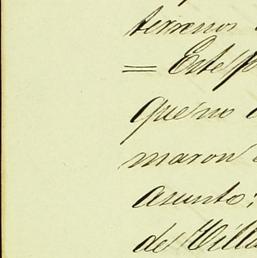 terrenos
= Este
que no
maron
asunto;
de Villa